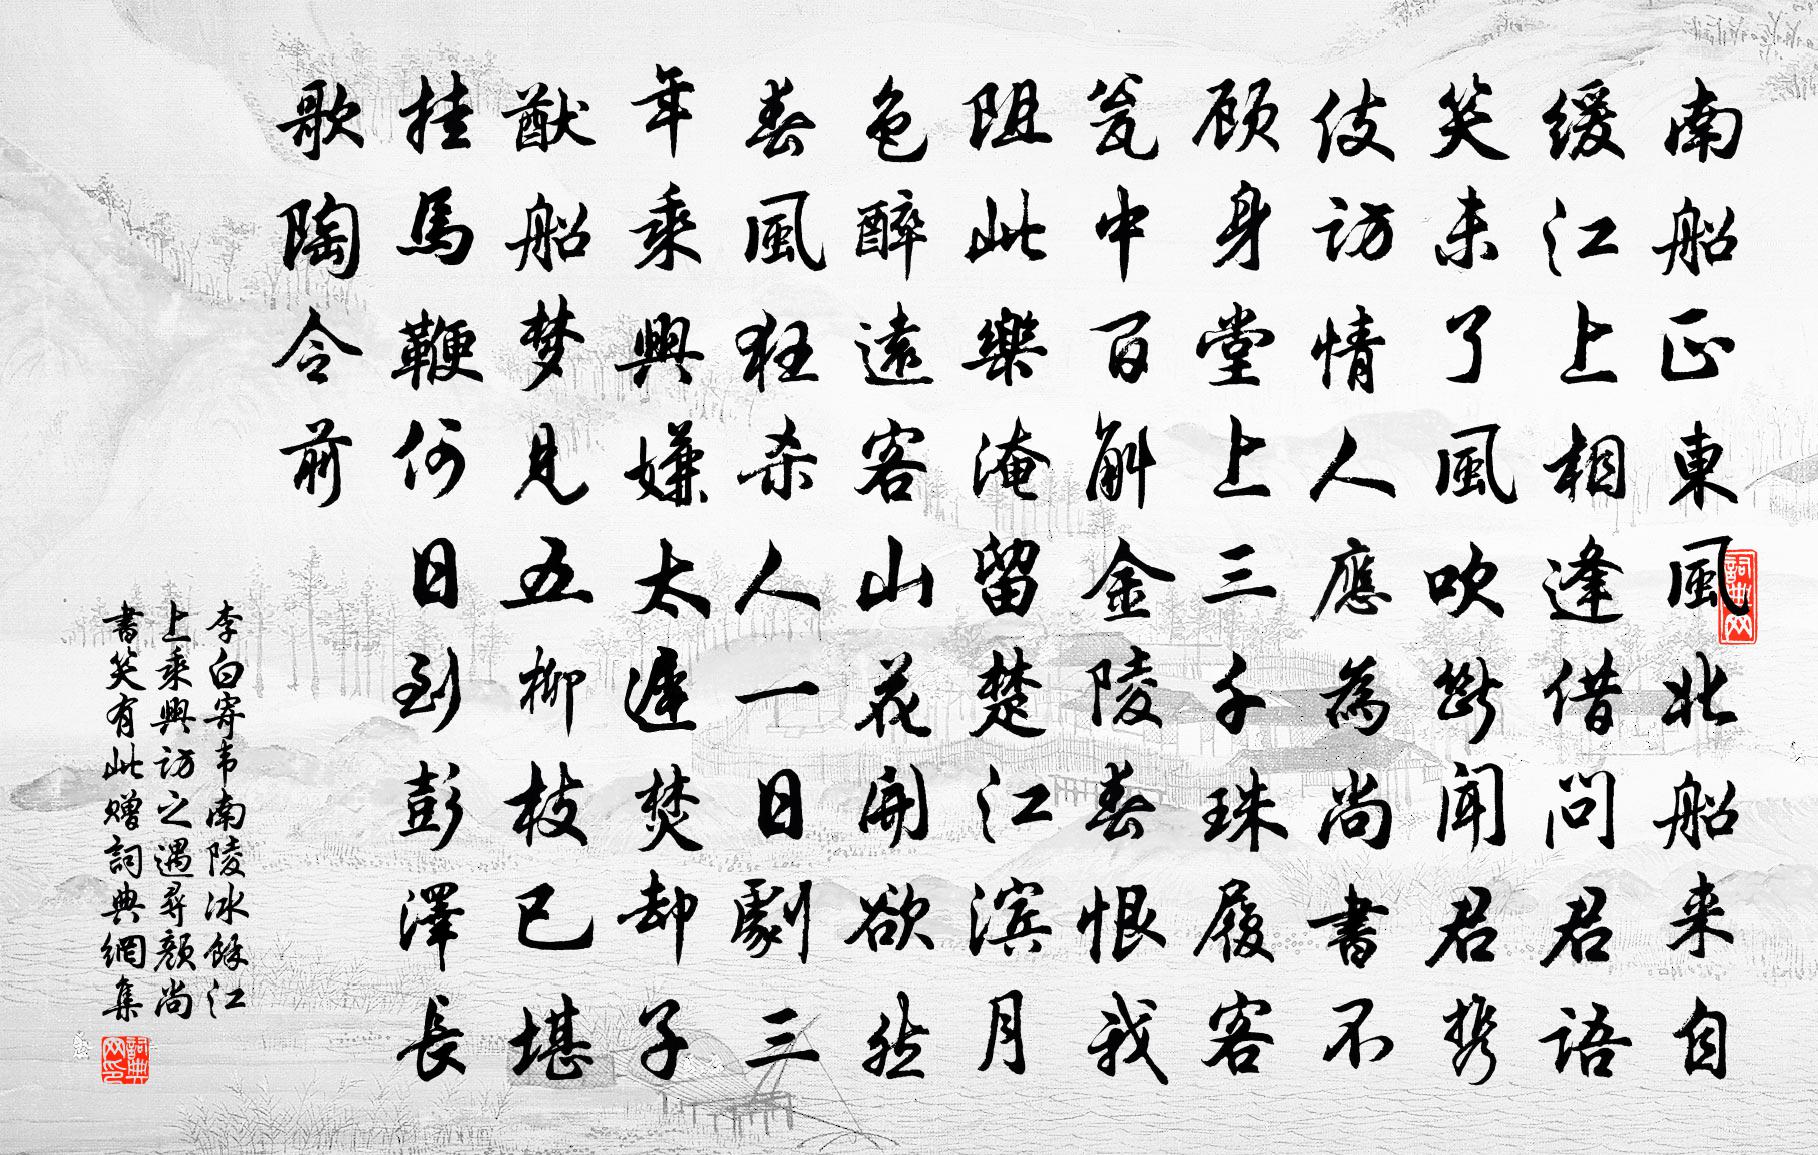 南船正東風北船来自
缓江上相逢借問君語
笑未了風吹断聞君携
伎訪情人應為尚書不
顾身堂上三千珠履客
瓮中百斛金陵春恨我
阻此樂淹留楚江滨月
色醉遠客山花開欲然
春風狂杀人一日劇三
年乘興嫌太遲焚却子
猷船梦見五柳枝已堪
挂馬鞭何日到彭澤長
歌陶令前
李白寄韦南陵冰餘江
上乘興訪之遇尋颜尚
書笑有此赠詞典網集
詞典网
詞典网印